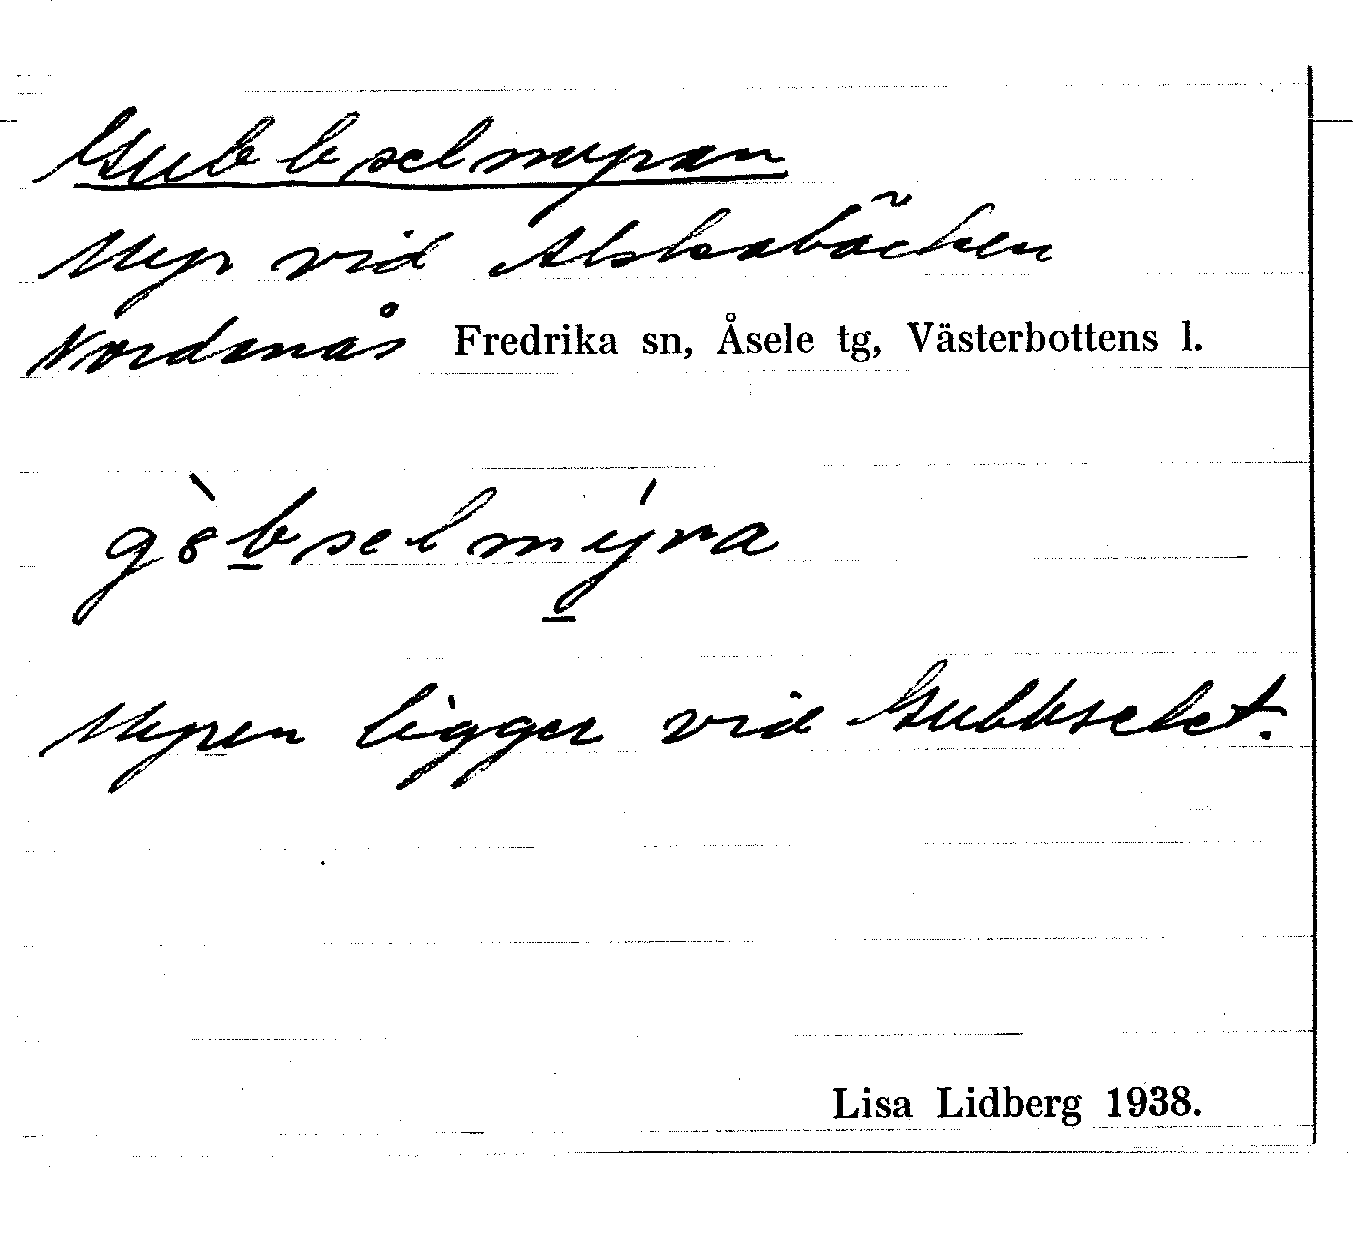 Gubbselmyran
Myr vid Alskabäcken
Nordanås Fredrika sn, Åsele tg, Västerbottens l.
g8̀b̲selmý̲ra
Myren ligger vid Gubbselet.
Lisa Lidberg 1938.